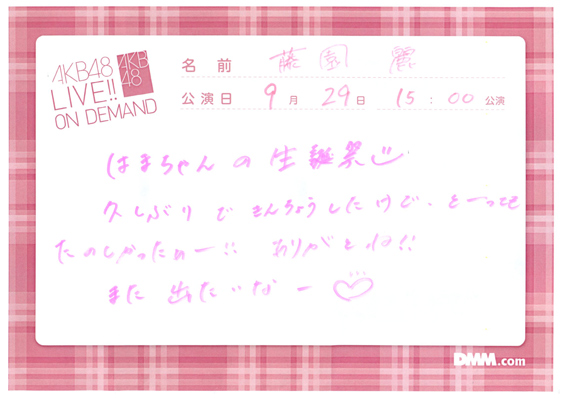 AKB48
LIVE!!
ON DEMAND
AKB
48
名前 藤園 麗
公演日 9月29日 15:00公演
はまちゃんの生誕祭
久しぶりできんちょうしたけど、とーっても
たのしかったねー!! ありがとね!!
また出たいなー
DMM.com